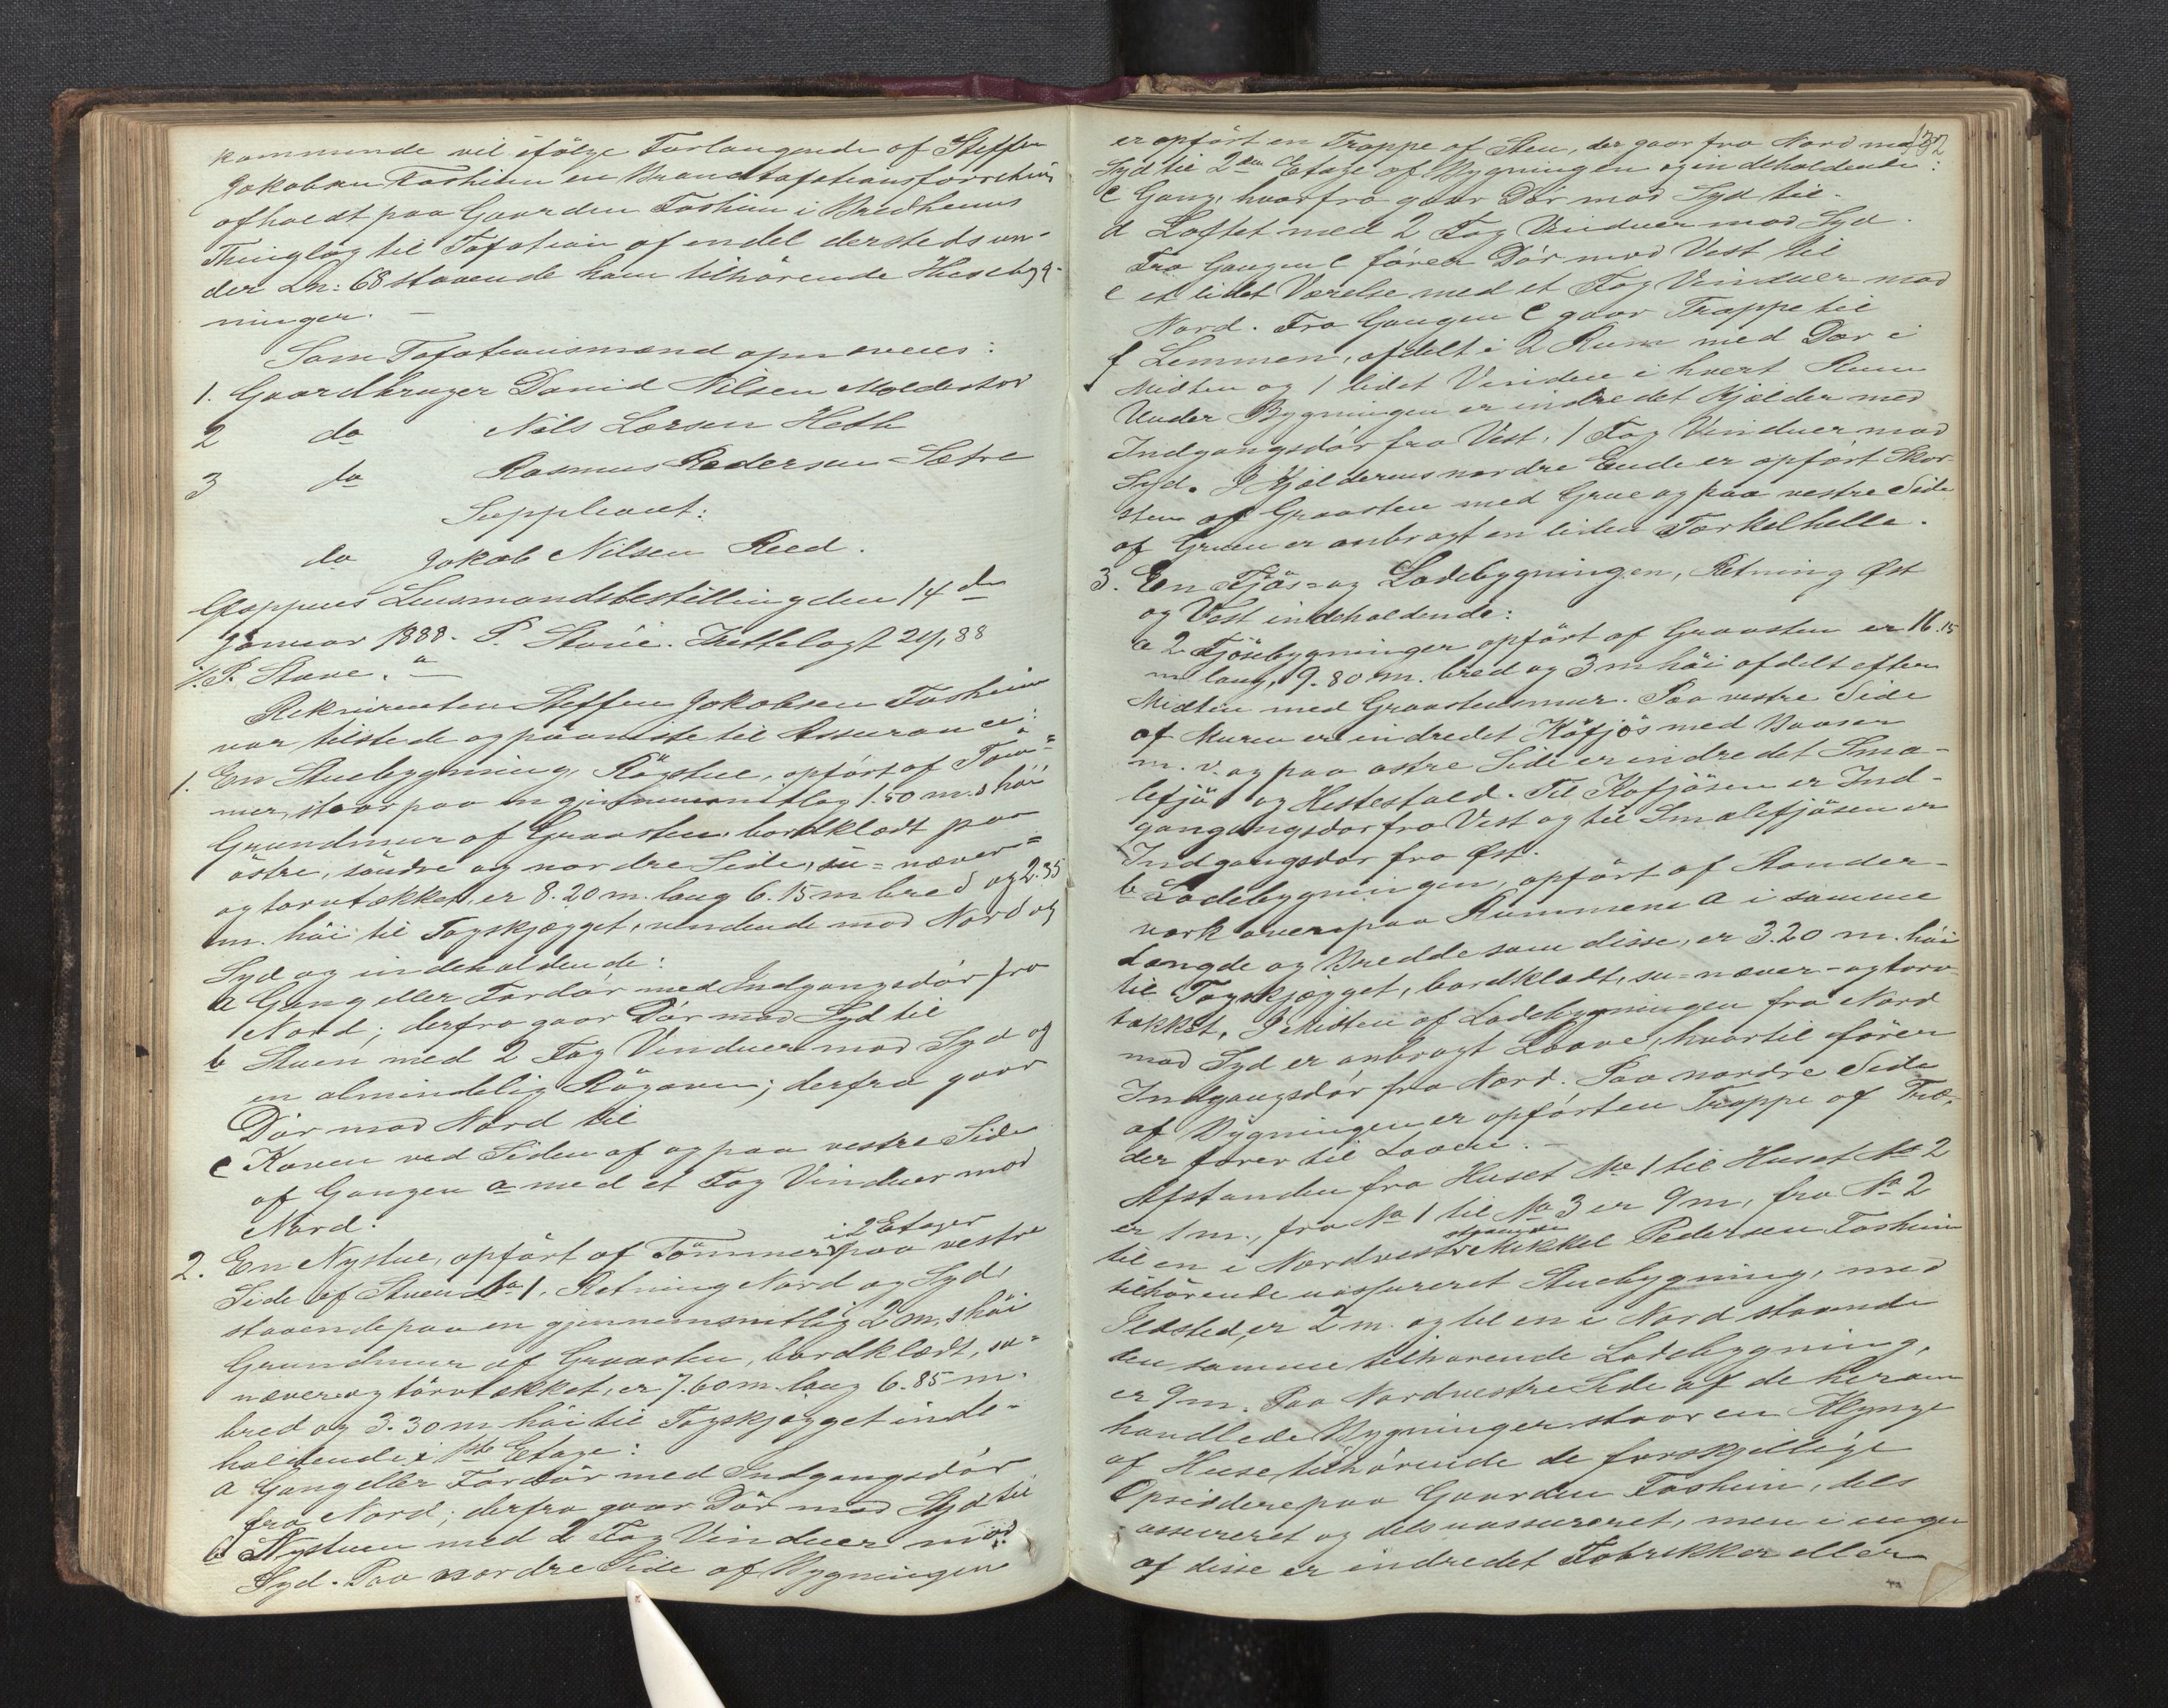 kommende vil ifölge Forlangende af Steffen
Jakobsen Fosheim en Brandtaxationsforretning
afholdt paa Gaarden Fosheim i Bredheims
Thinglag til Taxation af endel dersteds un-
der Ln: 68 staaende ham tilhörende Husebyg-
ninger. —
Som Taxationsmænd opnævnes:
1. Gaardbruger David Nilsen Moldestad
2 do Nils Larsen Heth
3 do Rasmus Pedersen Sætre
Suppleant:
do Jakob Nilsen Reed.
Gloppens Lensmandsbestilling den 14de
Januar 1888. P. Staue. Fremlagt 24/1 88
P. Staue.
Rekvirenten Steffen Jakobsen Fosheim
var tilstede og paaviste til Assurance:
1. En Stuebygning, Rögstue, opfört af Töm-
mer, staar paa en gjennemsnitlag 1.50 m.s höi
Grundmur af Graasten, bordklædt paa
östre, söndre og nordre Side, su- næver-
og torvtækket, er 8.20 m. lang 6.15 m bred og 2.35
m. höi til Tagskjægget, vendende mod Nord og
Syd og indeholdende:
a Gang eller Fordör med Indgangsdör fra
Nord; derfra gaar Dör mod Syd til
b Stuen med 2 Fag Vinduer mod Syd og
en almindelig Rögovn; derfra gaar
Dör mod Nord til
c Koven ved Siden af og paa vestre Side
af Gangen a med et Fag Vinduer mod
Nord.
2. En Nystue, opfört af Tömmer i 2 Etager paa vestre
Side af Stuen No 1, Retning Nord og Syd,
staaende paa en gjennemsnitlig 2 m.s höi
Grundmur af Graasten, bordklædt, su-
næver og törvtækket, er 7.60 m. lang 6.85 m.
bred og 3.30 m höi til Tagskjægget inde-
holdende i 1ste Etage:
a Gang eller Fordör med Indgangsdör
fra Nord; derfra gaar Dör mod Syd til
b Nystuen med 2 Fag Vinduer mod
Syd. Paa nordre Side af Bygningen
132
er opfört en Trappe af Sten, der gaar fra Nord mod
Syd til 2den Etage af Bygningen og indeholdende:
c Gang, hvorfra gaar Dör mod Syd til
d Loftet med 2 Fag Vinduer mod Syd.
Fra Gangen c förer Dör mod Vest til
e et lidet Værelse med et Fag Vinduer mod
Nord. Fra Gangen c gaar Trappe til
f Lemmen, afdelt i 2 Rum med Dör i
Midten og 1 lidet Vindue i hvert Rum
Under Bygningen er indredet Kjælder med
Indgangsdör fra Vest, 1 Fag Vinduer mod
Syd. I Kjælderens nordre Ende er opfört Skor-
sten af Graasten med Grue og paa vestre Side
af Gruen er anbragt en liden Törkelhelle.
3. En Fjös- og Ladebygningen, Retning Øst
og Vest indeholdende:
a 2 Fjösebygninger opfört af Graasten er 16.15
m lang, 9.80 m. bred og 3 m höi afdelt efter
Midten med Graastensmur. Paa vestre Side
af Muren er indredet Köfjös med Baaser
m. v. og paa östre Side er indredet Sma-
lefjös og Hestestald. Til Köfjösen er Ind-
gangangsdör fra Vest og til Smalefjösen er
Indgangsdör fra Øst.
b Ladebygningen, opfört af Stander-
værk ovenpaa Rummene a i samme
Længde og Bredde som disse, er 3.20 m. höi
til Tagskjægget, bordklædt, su- næver- og torv-
tækket. I Midten af Ladebygningen fra Nord
mod Syd er anbragt Loave, hvortil förer
Indgangsdör fra Nord. Paa nordre Side
af Bygningen er opfört en Trappe af Træ,
der förer til Loaen. —
Afstanden fra Huset No 1 til Huset No 2
er 1 m., fra No 1 til No 3 er 9 m, fra No 2
til en i Nordvest staaende Mikkel Pedersen Fosheim
tilhörende uassureret Stuebygning, med
Ildsted, er 2 m. og til en i Nord staaende
den samme tilhørende Ladebygning,
er 9 m. Paa Nordvestre Side af de herom
handlede Bygninger staar en Klynge
af Huse tilhörende de forskjellige
Opsiddere paa Gaarden Fosheim, dels
assureret og dels uassureret, men i ingen
af disse er indredet Fabrikker eller